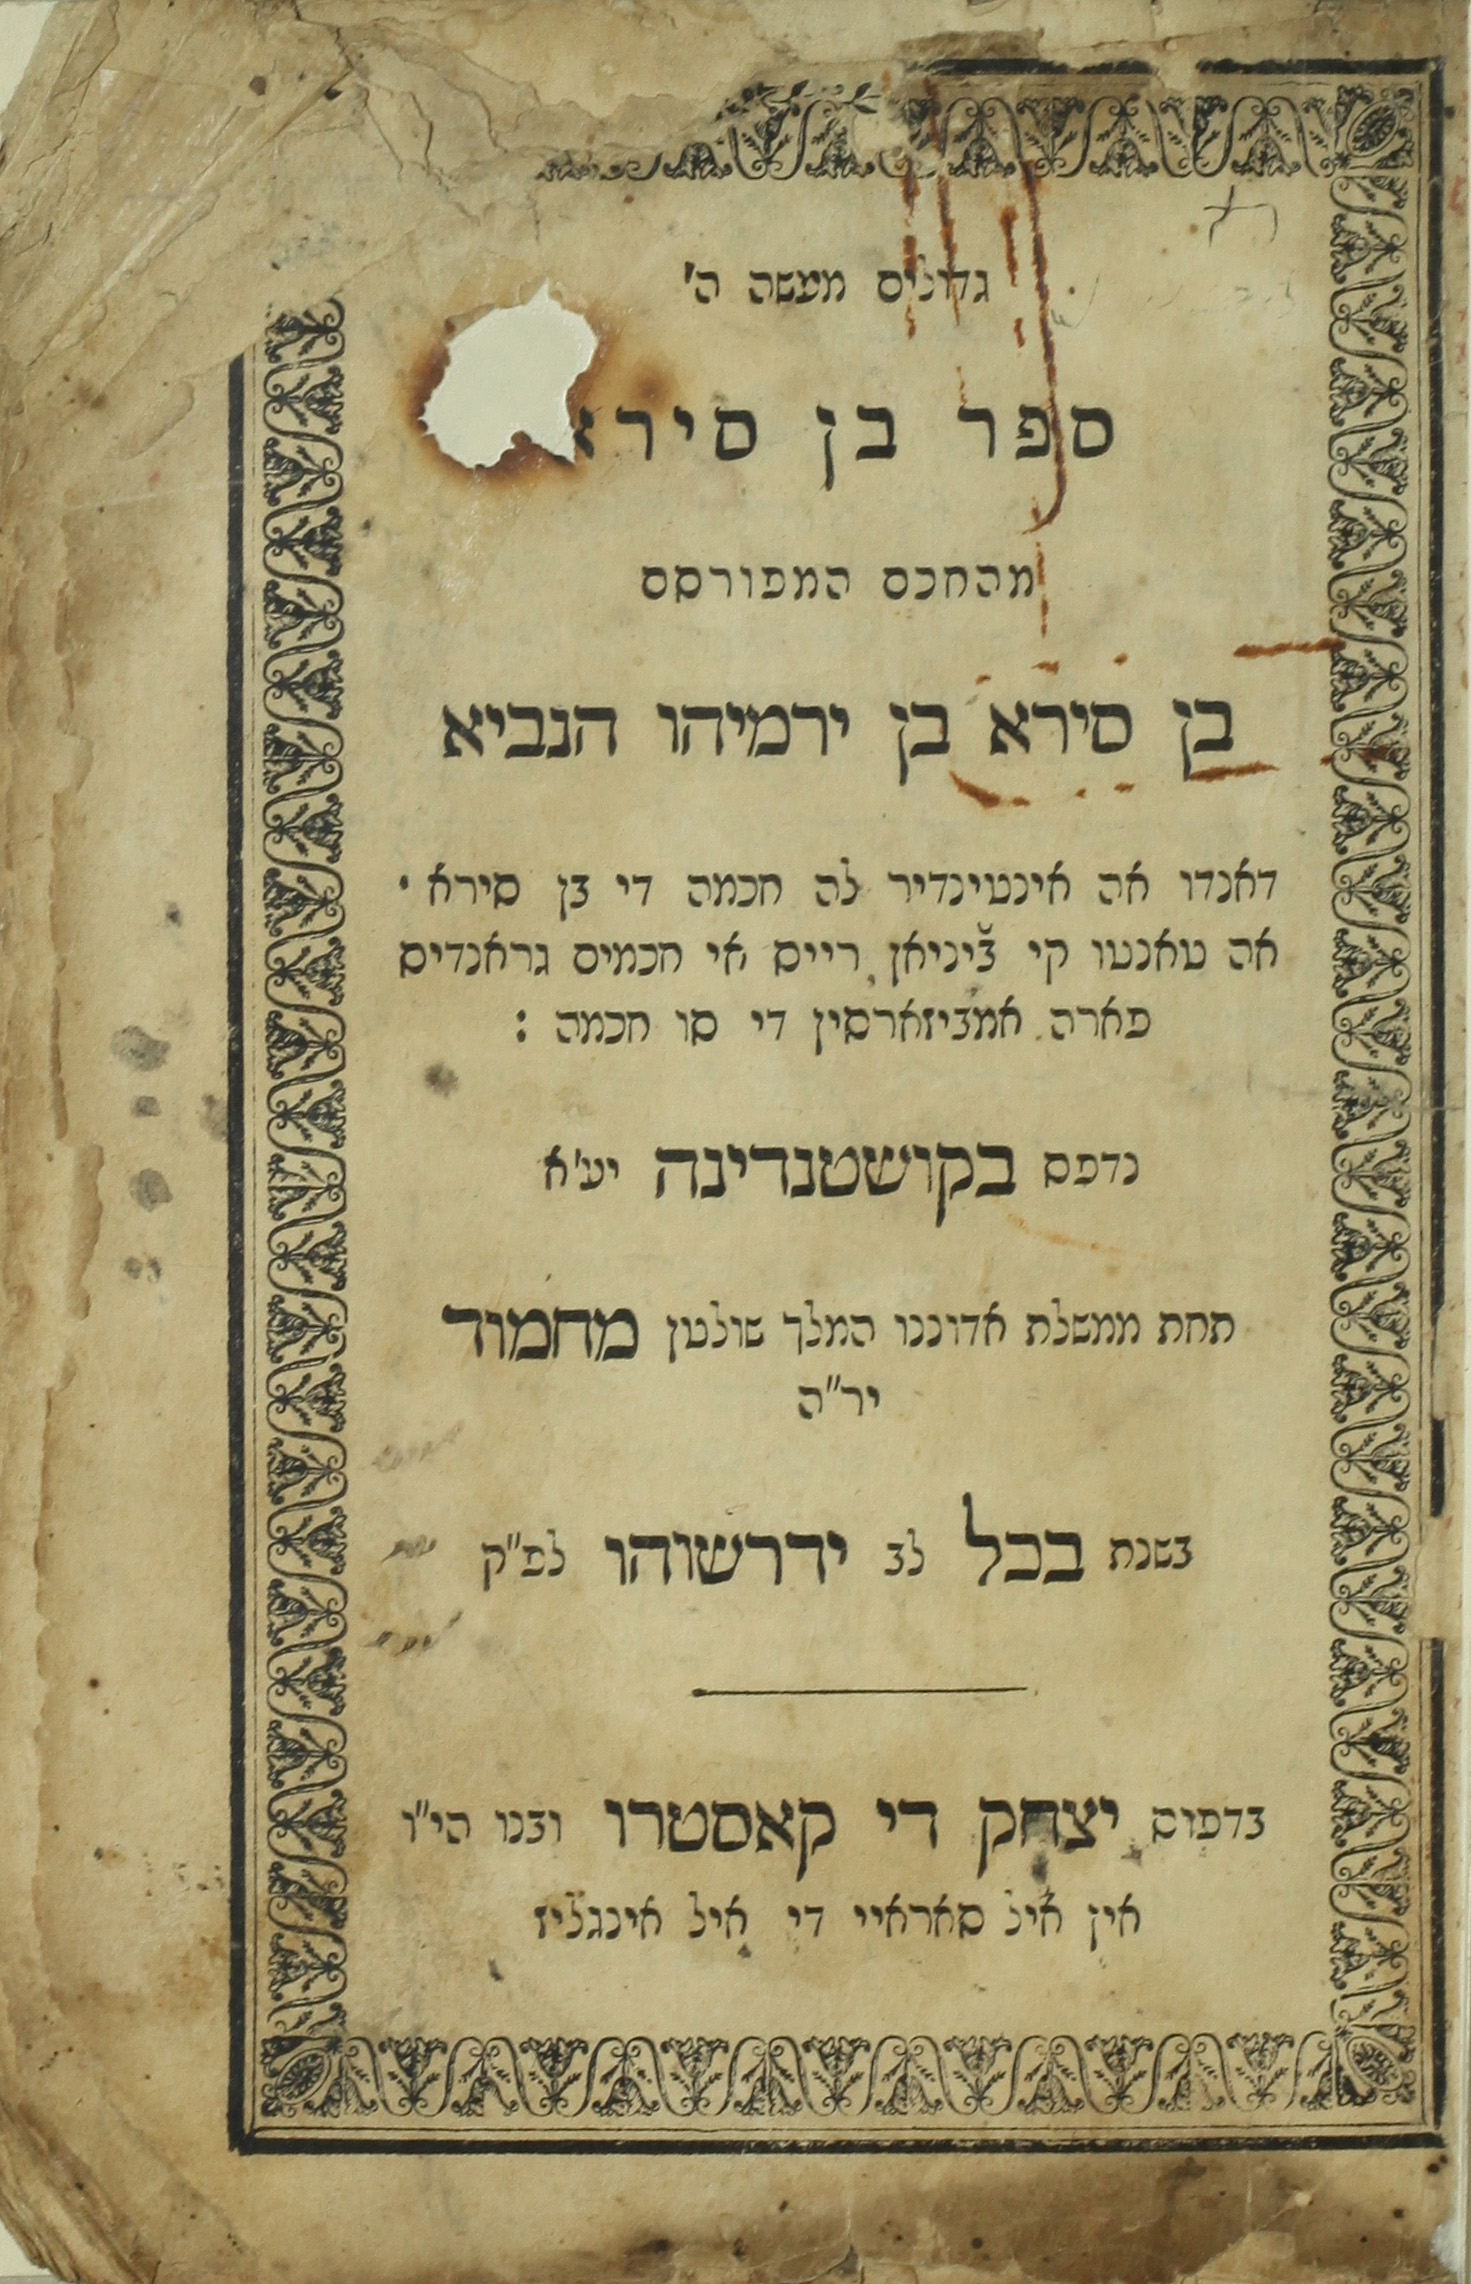 גדולים מעשה ה'
ספר בן סירא
מהחכם המפורסם
בן סירא בן ירמיהו הנביא
דאנדו אה אינטינדיר לה חכמה די בן סירא ·
אה טאנטו קי ב׳יניאן רייס אי חכמים גראנדיס
פארה אמביזארסין די סו חכמה :
נדפס בקושטנדינה יע'א
תחת ממשלת אדוננו המלך שולטן מחמוד
יר"ה
בשנת בכל לב ידרשוהו לפ"ק
בדפוס יצחק די קאסטרו ובנו הי"ו
אין איל סאראיי די איל אינגליז